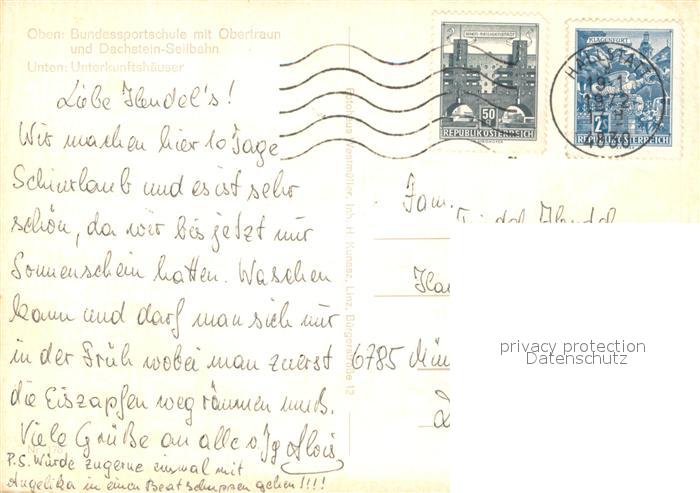 Oben: Bundessportschule mit Obertraun
und Dachstein-Seilbahn
Unten: Unterkunftshäuser
Liebe Hendel's!
Wir machen hier 10 Tage
Schiurlaub und es ist sehr
schön, da wir bis jetzt nur
Sonnenschein hatten. Waschen
kann und darf man sich nur
in der Früh wobei man zuerst
die Eiszapfen weg räumen muß.
Viele Grüße an alle v. Alois
P.S. Würde zu gerne einmal mit
Angelika in einen Beatschuppen gehen!!!!
Inh. H. Kunasz, Linz, Bürgerstraße 12
WIEN-HEILIGENSTADT
50
REPUBLIK ÖSTERREICH
KLAGENFURT
REPUBLIK ÖSTERREICH
HALLSTATT
Fam.
Hendel
6785 Mün
privacy protection
Datenschutz